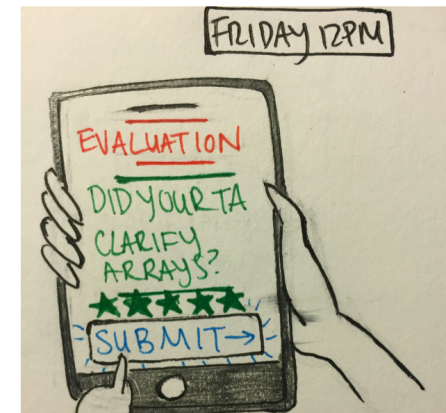 FRIDAY 12PM
EVALUATION
DID YOUR TA
CLARIFY
ARRAYS?
SUBMIT→